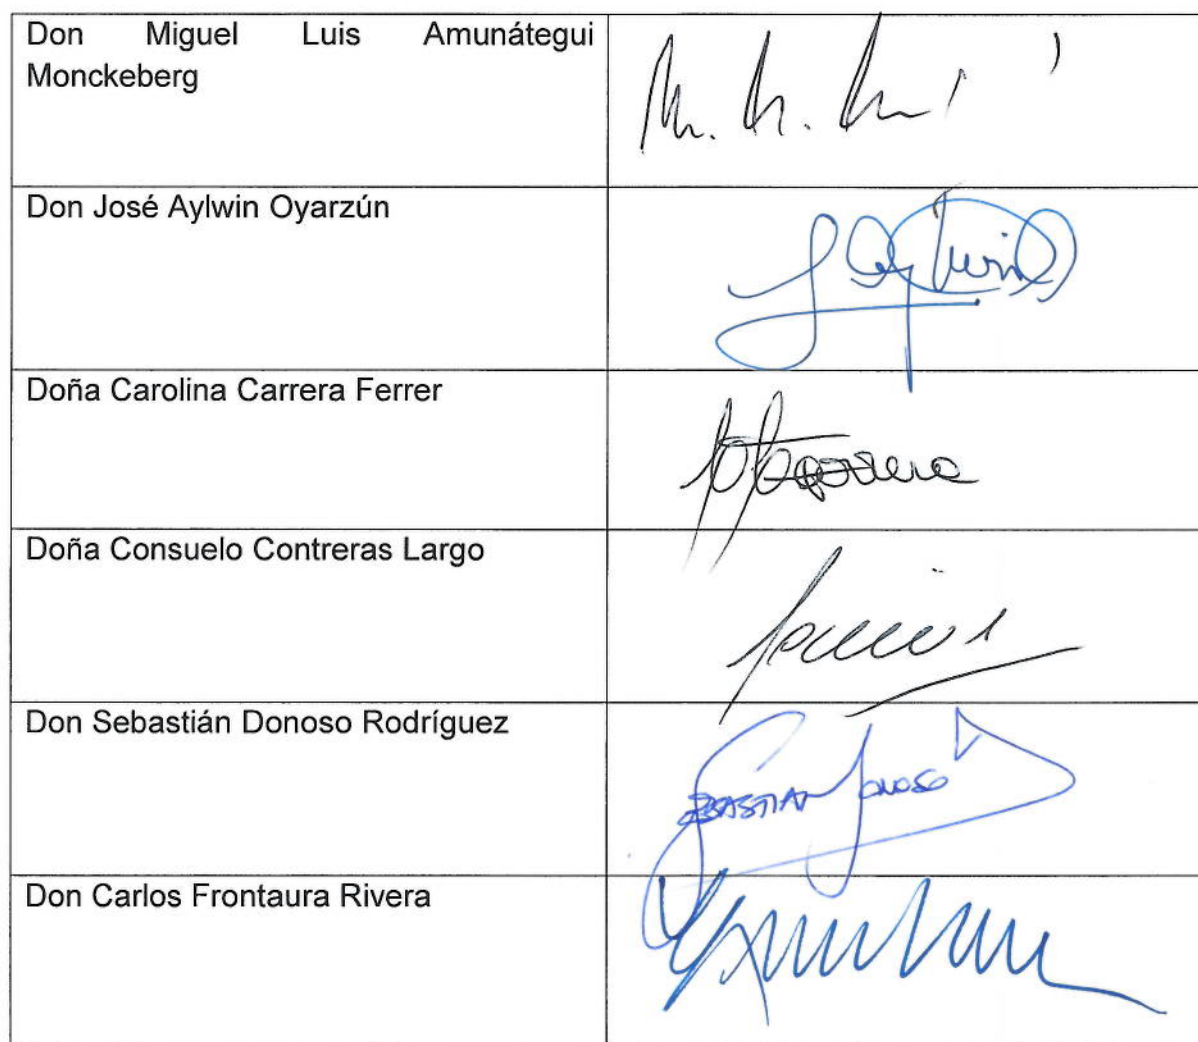 Don Miguel Luis Amunátegui
Monckeberg
Don José Aylwin Oyarzún
Doña Carolina Carrera Ferrer
Doña Consuelo Contreras Largo
Don Sebastián Donoso Rodríguez
SEBASTIAN DONOSO
Don Carlos Frontaura Rivera